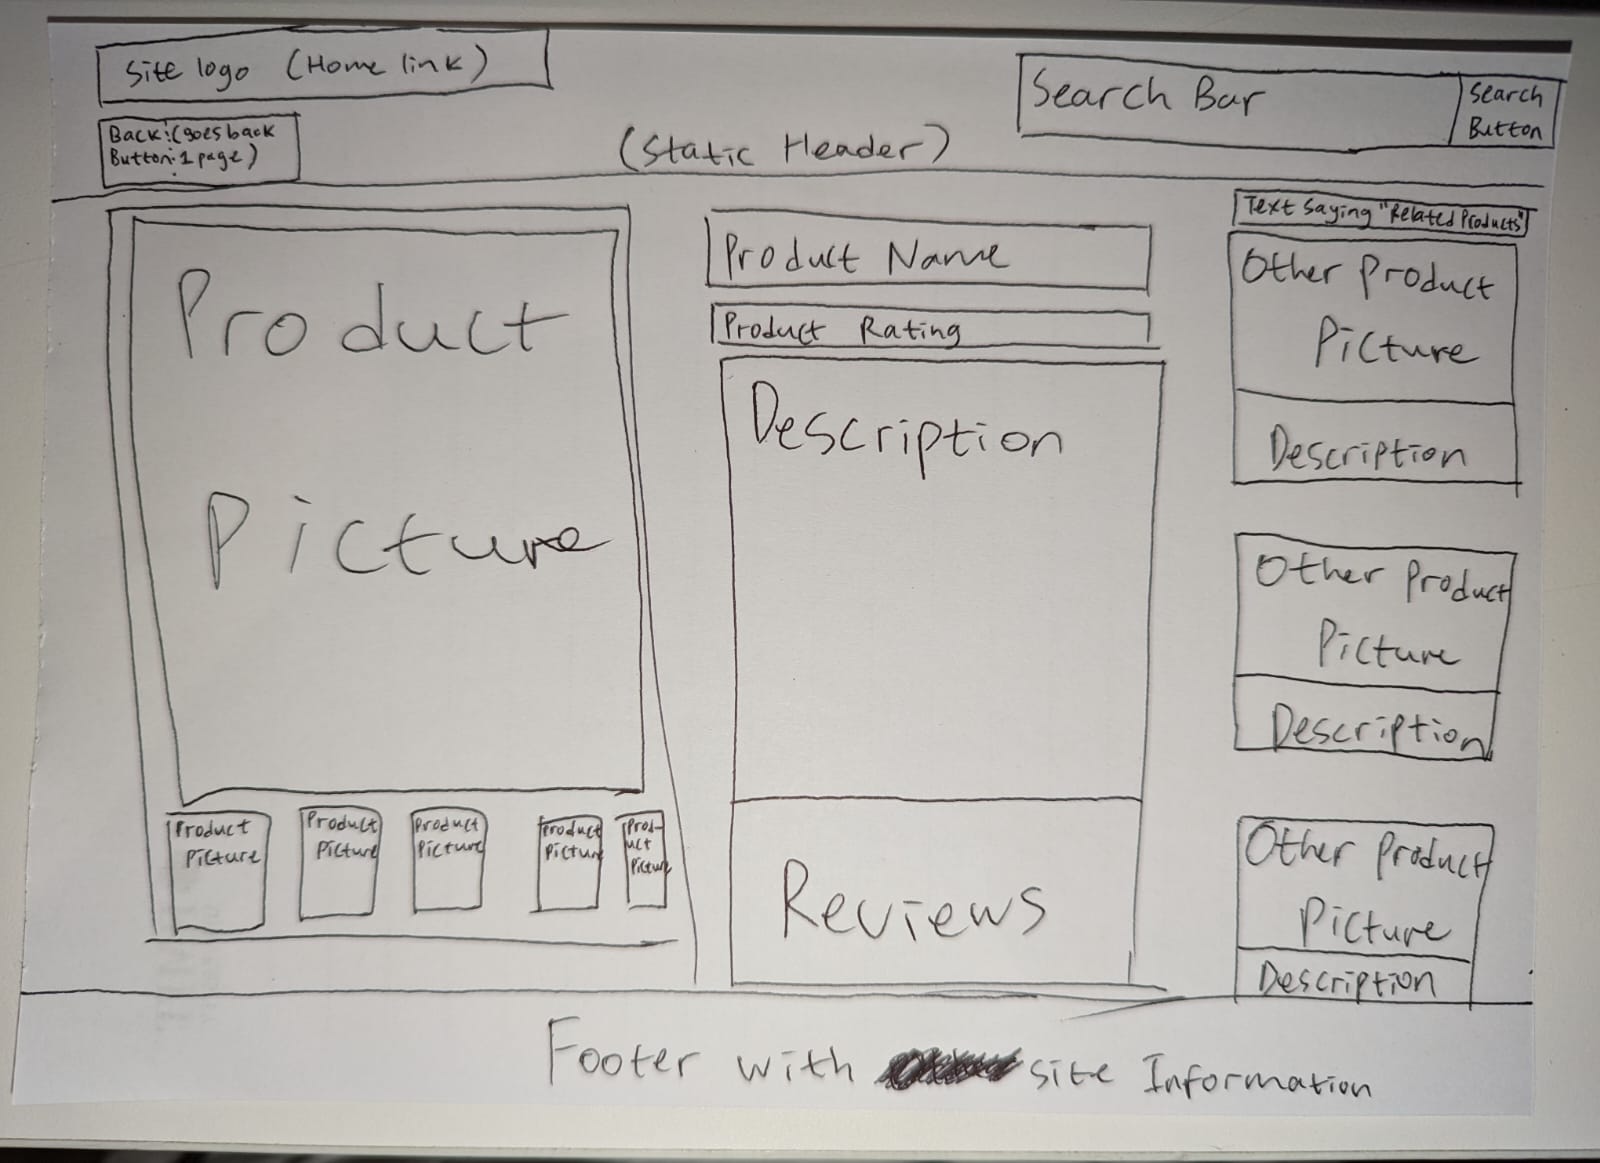 Site logo (Home link)
Search Bar
Search
Button
Back:(goes back
Button:1 page)
(Static Header)
Product
Picture
Product
Picture
Product
Picture
Product
Picture
Product
Picture
Prod-
uct
Picture
Product Name
Product Rating
Description
Reviews
Text saying "Related Products"
Other Product
Picture
Description
Other Product
Picture
Description
Other Product
Picture
Description
Footer with site Information